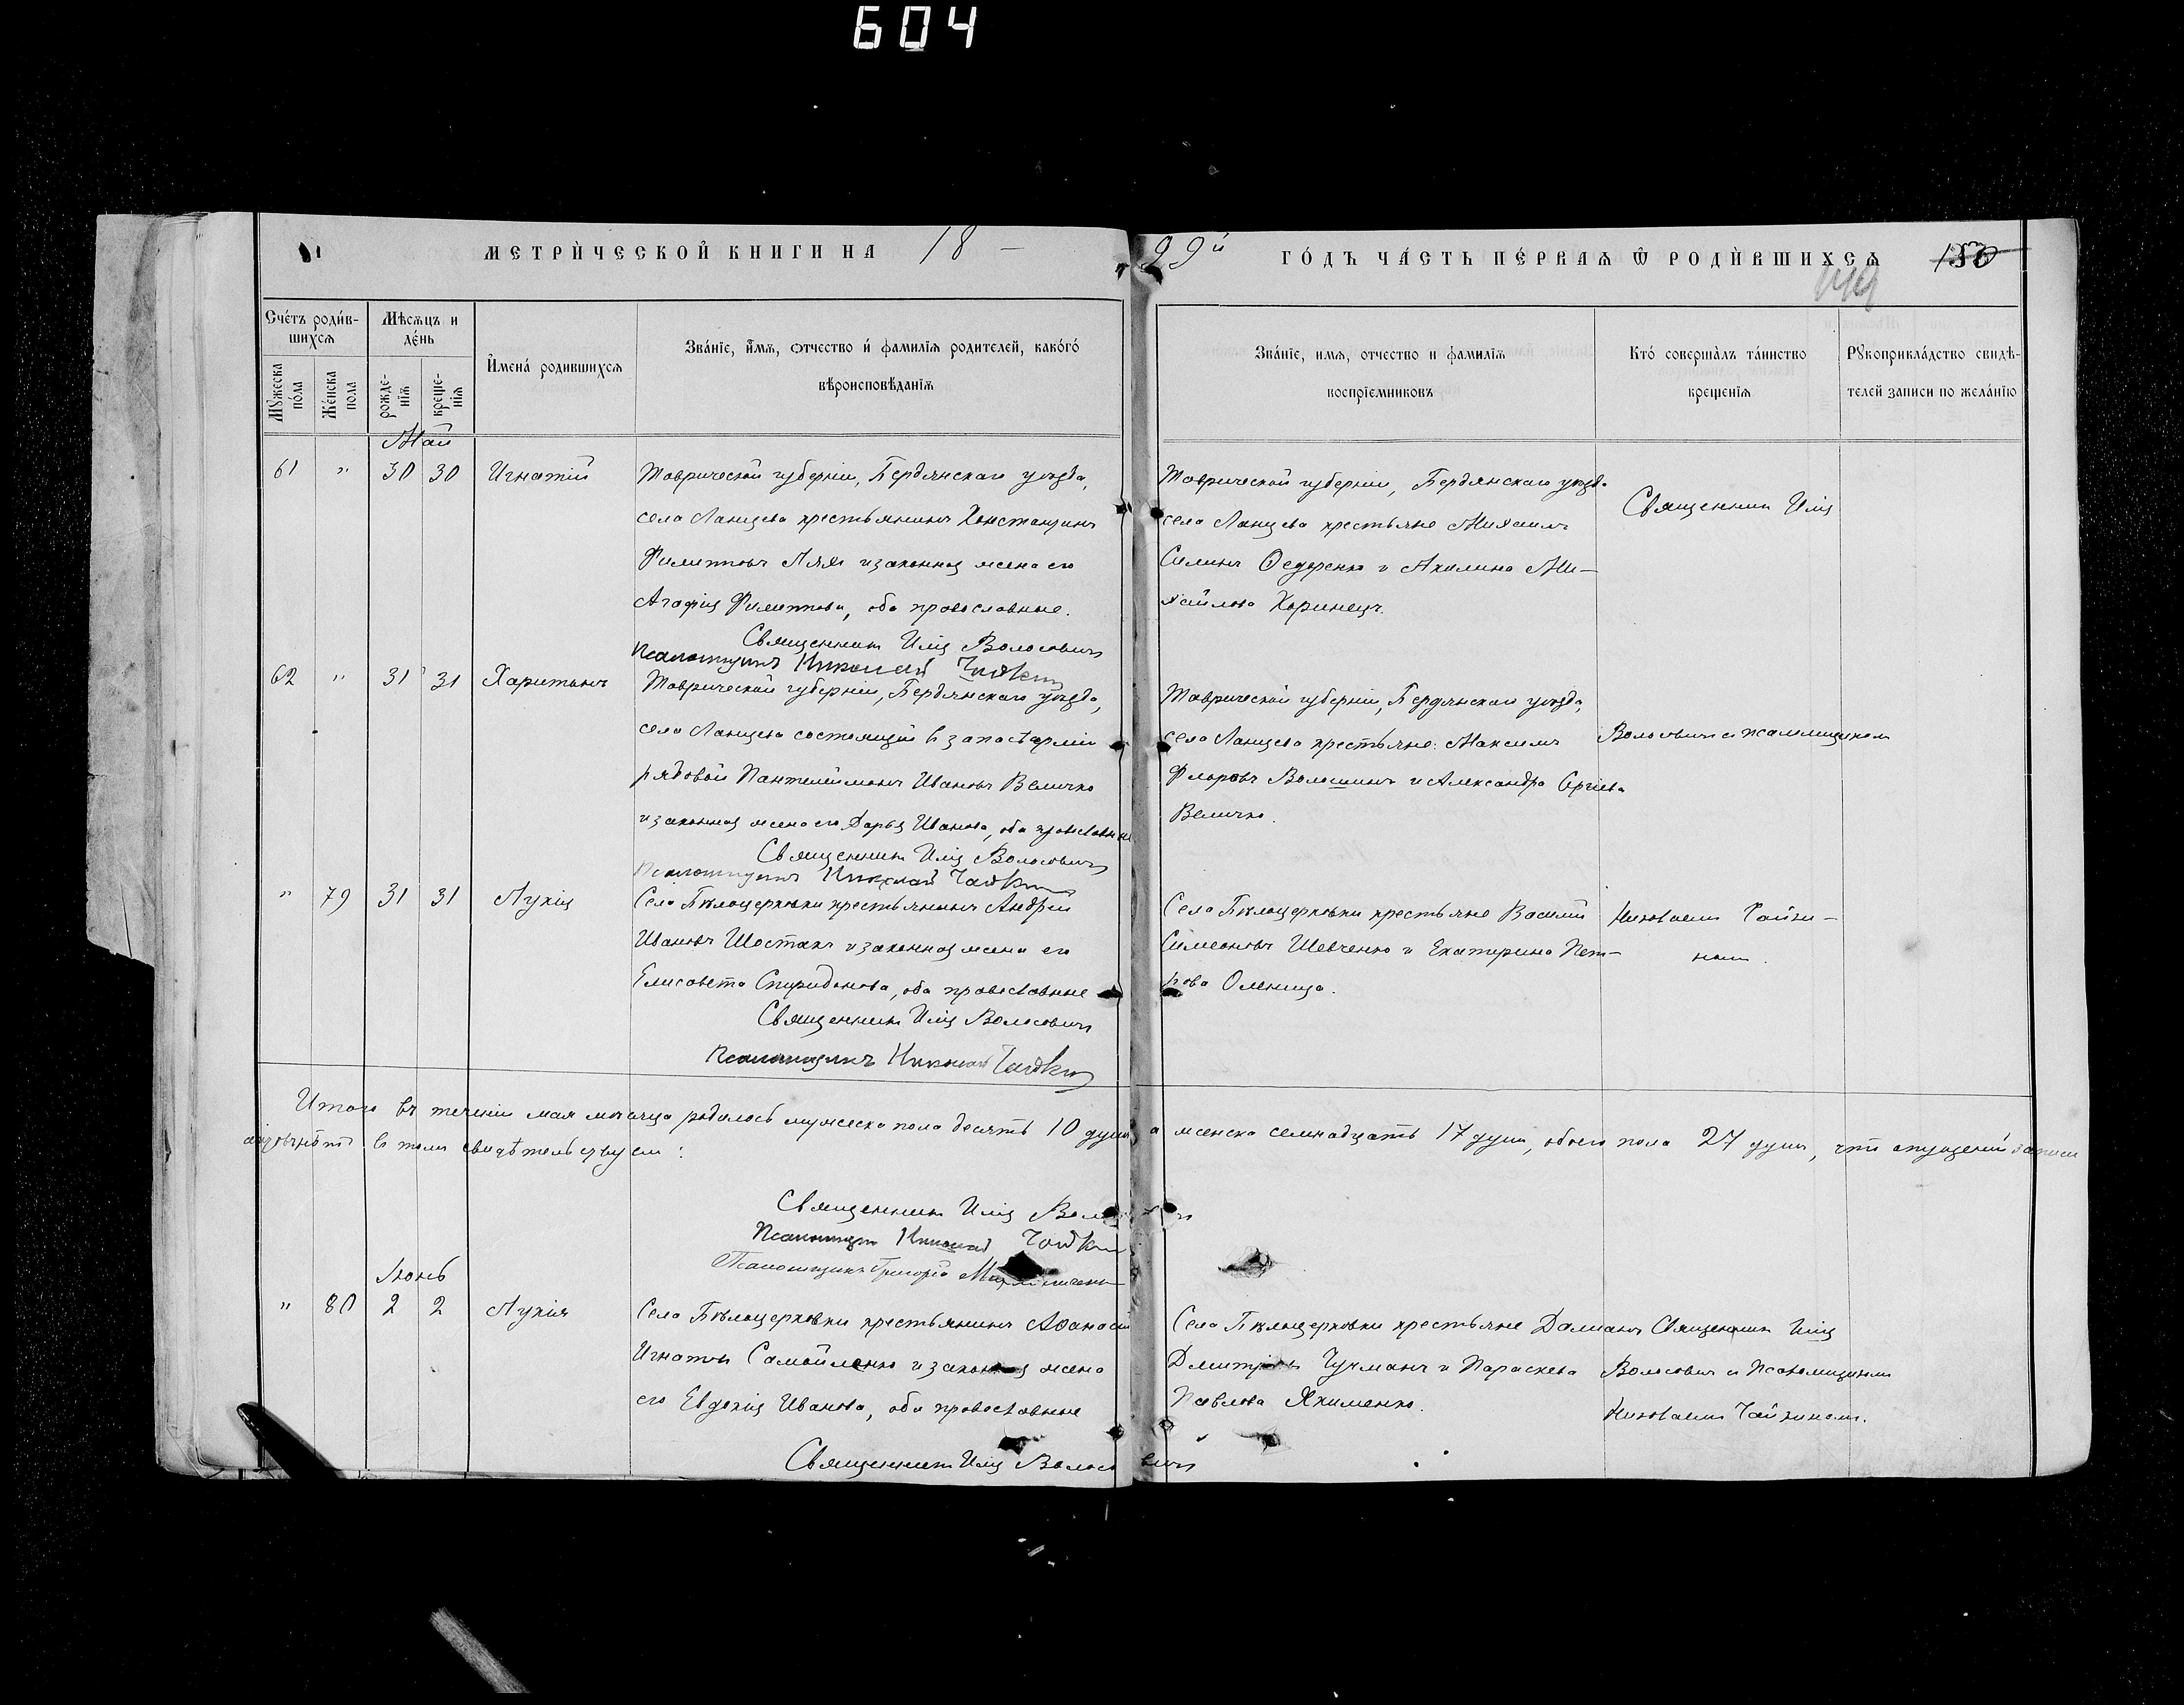 604
МЕТРИЧЕСКОЙ КНИГИ НА 18 —
99й ГОДЪ ЧАСТЬ ПЕРВАѦ Ѿ РОДИВШИХСѦ 150
149
Счетъ родив-
шихсѧ
Мꙋжеска пола
Женска пола
Мѣсѧцъ и
день
рожде-
нїѧ
креще-
нїѧ
Имена родившихсѧ
Званїе, имѧ, отчество и фамилїѧ родителей, какогѡ
вѣроисповѣданїѧ
Званїе, имѧ, отчество и фамилїѧ
воспрїемниковъ
Кто совершалъ таинство
крещенїѧ
Рꙋкоприкладство свидѣ-
телей записи по желанїю
Май
61 " 30 30 Игнатій
Таврической губерніи, Бердянскаго уѣзда,
села Ланцева крестьянинъ Константинъ
Филипповъ Ляхъ и законная жена его
Агафія Филиппова, оба православные.
Священникъ Илія Волосовичъ
Псаломщикъ Николай Чайкин
Таврической губерніи, Бердянскаго уѣзда
села Ланцева крестьяне Михаилъ
Силинъ Федоренко и Акилина Ми-
хайлова Харинецъ.
Священник Илія
62 " 31 31 Харитонъ
Таврической губерніи, Бердянскаго уѣзда,
села Ланцева состоящій в запасѣ арміи
рядовой Пантелеймонъ Ивановъ Величко
и законная жена его Дарья Иванова, оба православные
Священникъ Илія Волосовичъ
Псаломщикъ Николай Чайкин
Таврической губерніи, Бердянскаго уѣзда,
села Ланцева крестьяне: Максимъ
Флоровъ Волошинъ и Александра Сергіева
Величко.
Волосович и псаломщиком
" 79 31 31 Лукія
Села Бѣлоцерковки крестьянинъ Андрей
Ивановъ Шостакъ и законная жена его
Елисавета Спиридонова, оба православные
Священникъ Илія Волосовичъ
Псаломщикъ Николай Чайкин
Села Бѣлоцерковки крестьяне Василій
Симеоновъ Шевченко и Екатерина Пет-
рова Оленица.
Николаем Чайки-
ным.
Итого въ теченіи мая мѣсяца родилось мужеска пола десять 10 душъ, а женска семнадцать 17 душ, обоего пола 27 душъ, что опущеній записи
в томъ свидѣтельствуем:
Священникъ Илія Волосовичъ
Псаломщик Николай Чайкин
Псаломщикъ Григорій
Іюнь
" 80 2 2 Лукія
Села Бѣлоцерковки крестьянинъ Афанасій
Игнатов Самойленко и законная жена
его Евдокія Иванова, оба православные
Священникъ Илія Волосовичъ
Села Бѣлоцерковки крестьяне Даміанъ
Димитріевъ Чухманъ и Параскева
Павлова Якименко.
Священник Илія
Волосович и Псаломщиком
Николаем Чайкиным.